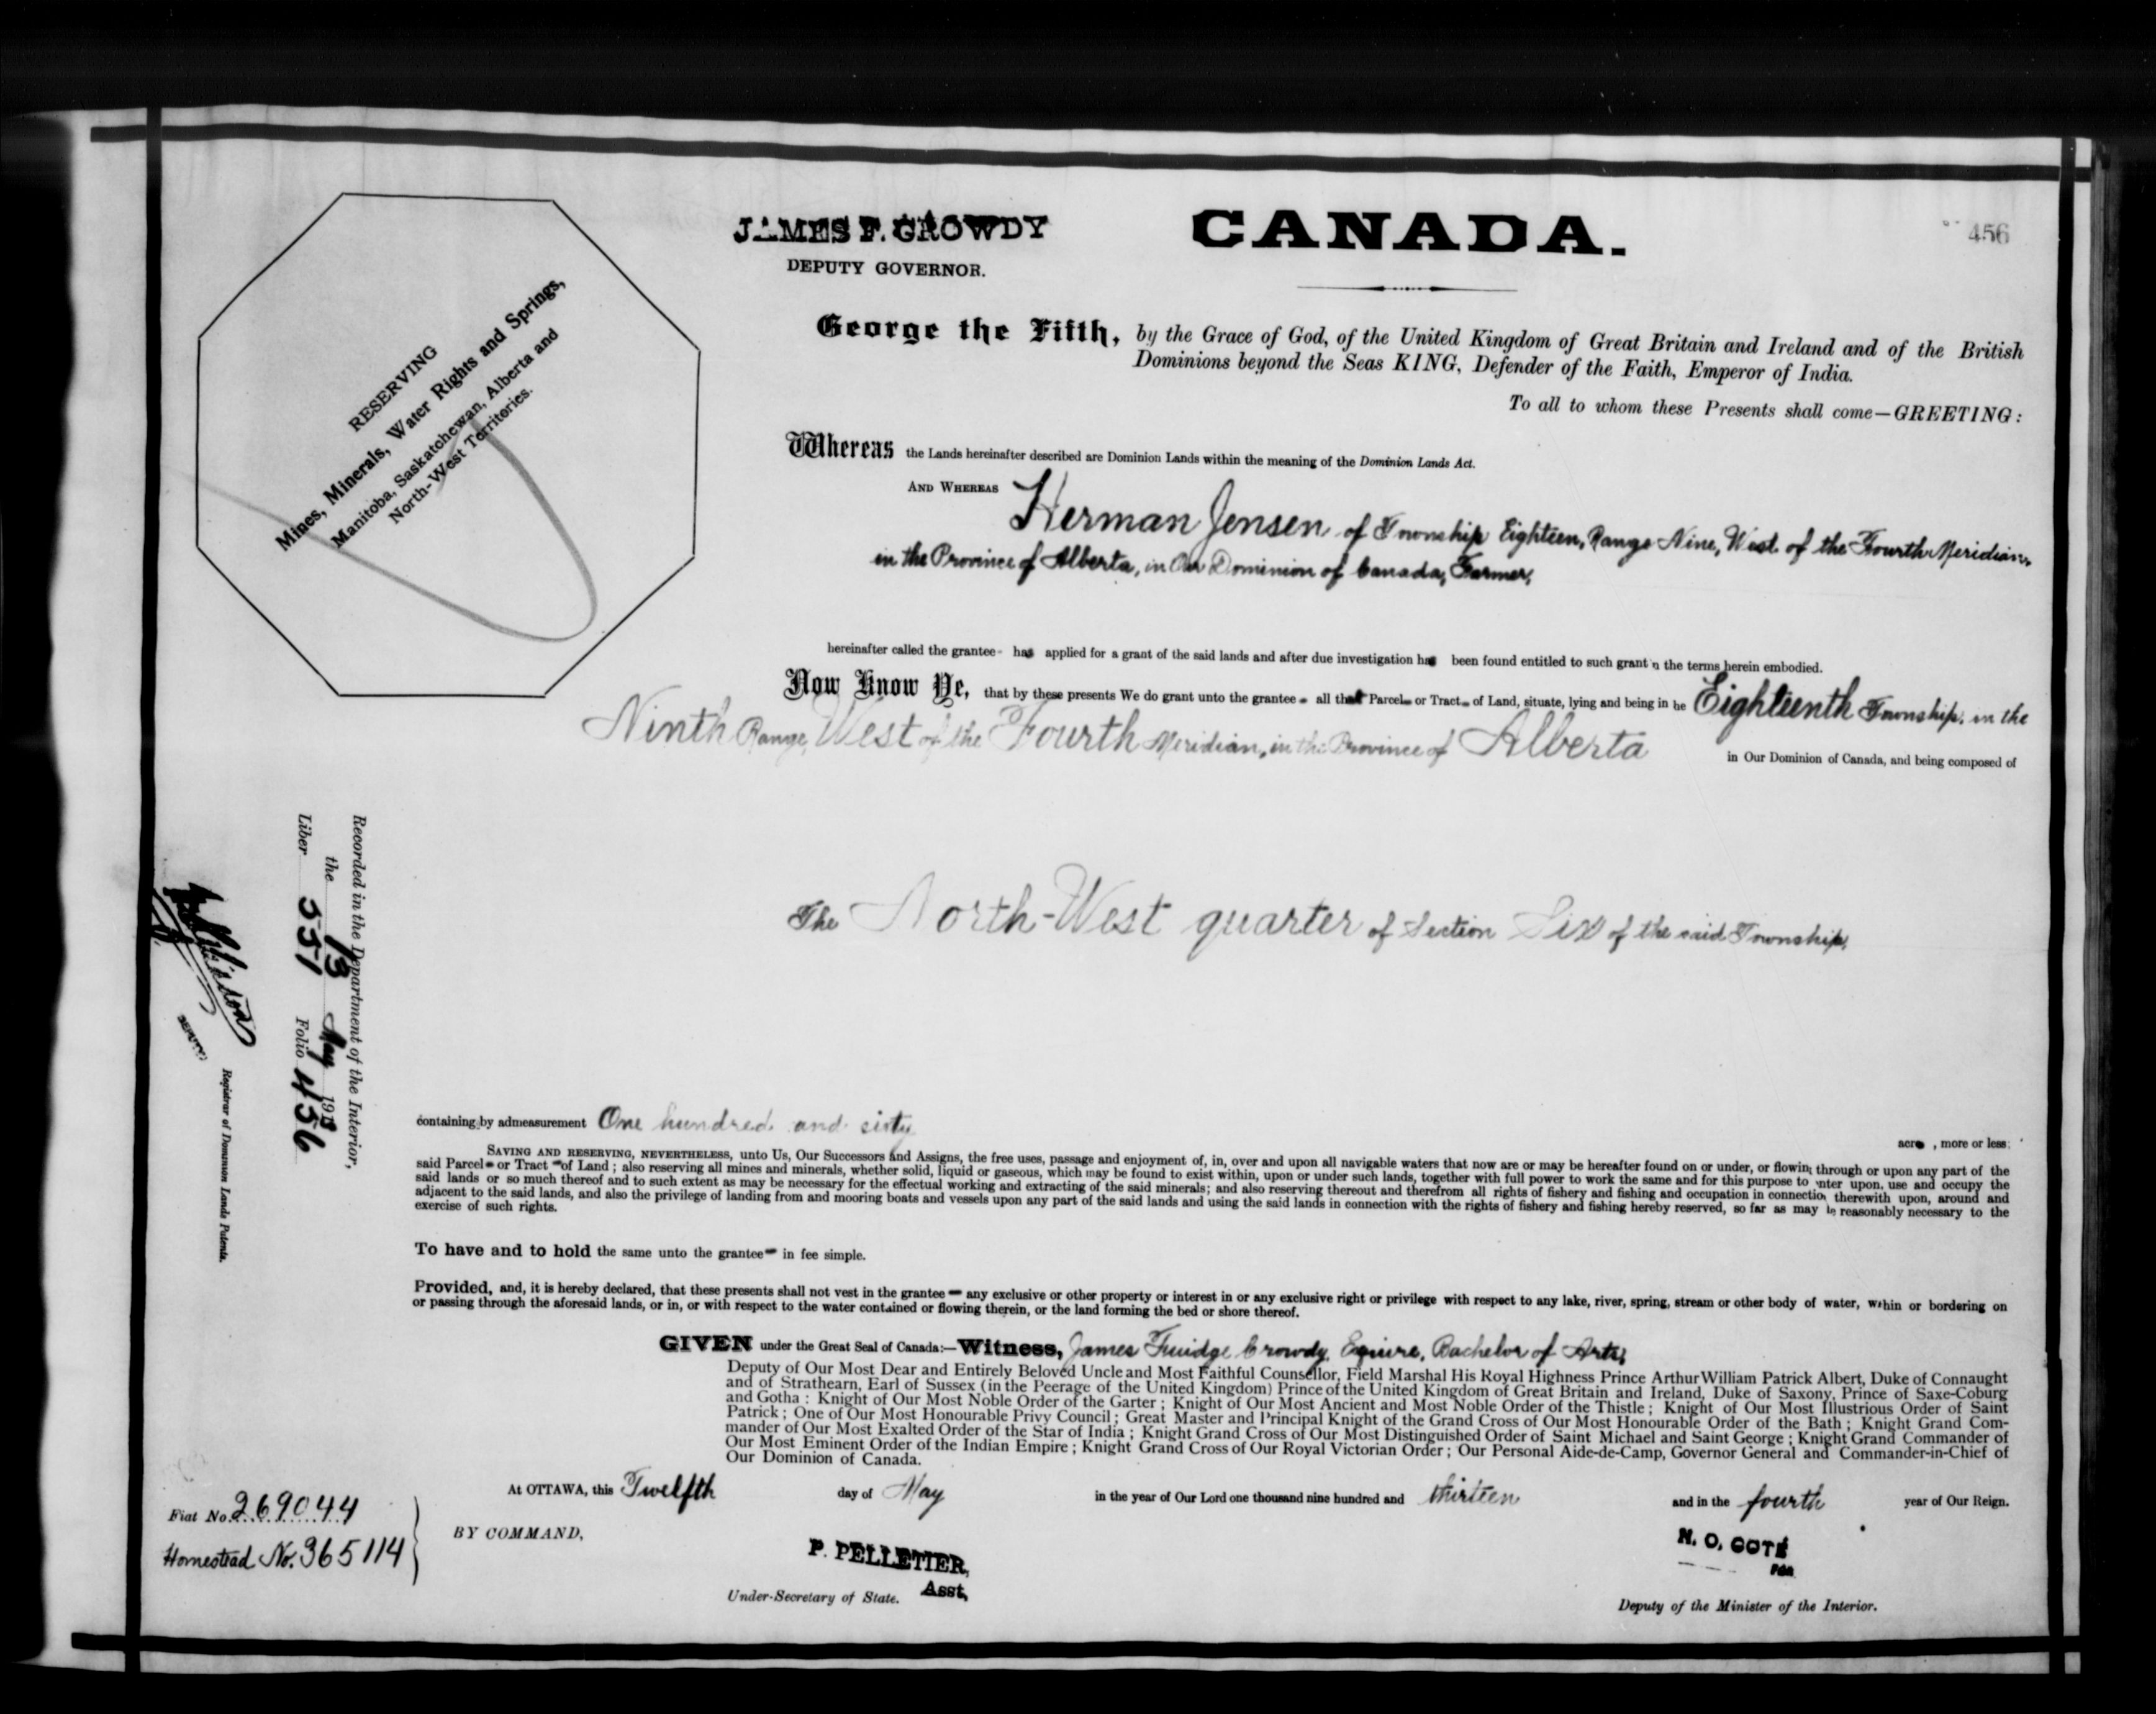 JAMES F. CROWDY
DEPUTY GOVERNOR.
CANADA.
456
RESERVING
Mines, Minerals, Water Rights and Springs,
Manitoba, Saskatchewan, Alberta and
North-West Territories.
George the Fifth, by the Grace of God, of the United Kingdom of Great Britain and Ireland and of the British
Dominions beyond the Seas KING, Defender of the Faith, Emperor of India.
To all to whom these Presents shall come—GREETING:
Whereas the Lands hereinafter described are Dominion Lands within the meaning of the Dominion Lands Act.
AND WHEREAS Herman Jensen of Township Eighteen, Range Nine, West of the Fourth Meridian,
in the Province of Alberta, in Our Dominion of Canada, Farmer,
hereinafter called the grantee has applied for a grant of the said lands and after due investigation has been found entitled to such grant n the terms herein embodied.
Now Know Ye, that by these presents We do grant unto the grantee all that Parcel or Tract of Land, situate, lying and being in he Eighteenth Township, in the
Ninth Range, West of the Fourth Meridian, in the Province of Alberta
in Our Dominion of Canada, and being composed of
The North-West quarter of Section Six of the said Township,
Recorded in the Department of the Interior,
the 13 May 1913
Liber 551 Folio 456
DEPUTY
Registrar of Dominion Lands Patents.
containing by admeasurement One hundred and sixty
acre , more or less:
SAVING AND RESERVING, NEVERTHELESS, unto Us, Our Successors and Assigns, the free uses, passage and enjoyment of, in, over and upon all navigable waters that now are or may be hereafter found on or under, or flowing through or upon any part of the
said Parcel or Tract of Land ; also reserving all mines and minerals, whether solid, liquid or gaseous, which may be found to exist within, upon or under such lands, together with full power to work the same and for this purpose to nter upon, use and occupy the
said lands or so much thereof and to such extent as may be necessary for the effectual working and extracting of the said minerals; and also reserving thereout and therefrom all rights of fishery and fishing and occupation in connection therewith upon, around and
adjacent to the said lands, and also the privilege of landing from and mooring boats and vessels upon any part of the said lands and using the said lands in connection with the rights of fishery and fishing hereby reserved, so far as may be reasonably necessary to the
exercise of such rights.
To have and to hold the same unto the grantee in fee simple.
Provided, and, it is hereby declared, that these presents shall not vest in the grantee any exclusive or other property or interest in or any exclusive right or privilege with respect to any lake, river, spring, stream or other body of water, within or bordering on
or passing through the aforesaid lands, or in, or with respect to the water contained or flowing therein, or the land forming the bed or shore thereof.
GIVEN under the Great Seal of Canada:—Witness, James Fuidge Crowdy, Equire, Bachelor of Arts,
Deputy of Our Most Dear and Entirely Beloved Uncle and Most Faithful Counsellor, Field Marshal His Royal Highness Prince Arthur William Patrick Albert, Duke of Connaught
and of Strathearn, Earl of Sussex (in the Peerage of the United Kingdom) Prince of the United Kingdom of Great Britain and Ireland, Duke of Saxony, Prince of Saxe-Coburg
and Gotha : Knight of Our Most Noble Order of the Garter ; Knight of Our Most Ancient and Most Noble Order of the Thistle ; Knight of Our Most Illustrious Order of Saint
Patrick ; One of Our Most Honourable Privy Council ; Great Master and Principal Knight of the Grand Cross of Our Most Honourable Order of the Bath ; Knight Grand Com-
mander of Our Most Exalted Order of the Star of India ; Knight Grand Cross of Our Most Distinguished Order of Saint Michael and Saint George ; Knight Grand Commander of
Our Most Eminent Order of the Indian Empire ; Knight Grand Cross of Our Royal Victorian Order ; Our Personal Aide-de-Camp, Governor General and Commander-in-Chief of
Our Dominion of Canada.
At OTTAWA, this Twelfth day of May in the year of Our Lord one thousand nine hundred and thirteen and in the fourth year of Our Reign.
Fiat No. 269044
Homestead No. 365114
BY COMMAND,
P. PELLETIER,
Asst,
Under-Secretary of State.
N. O. COTE
Deputy of the Minister of the Interior.